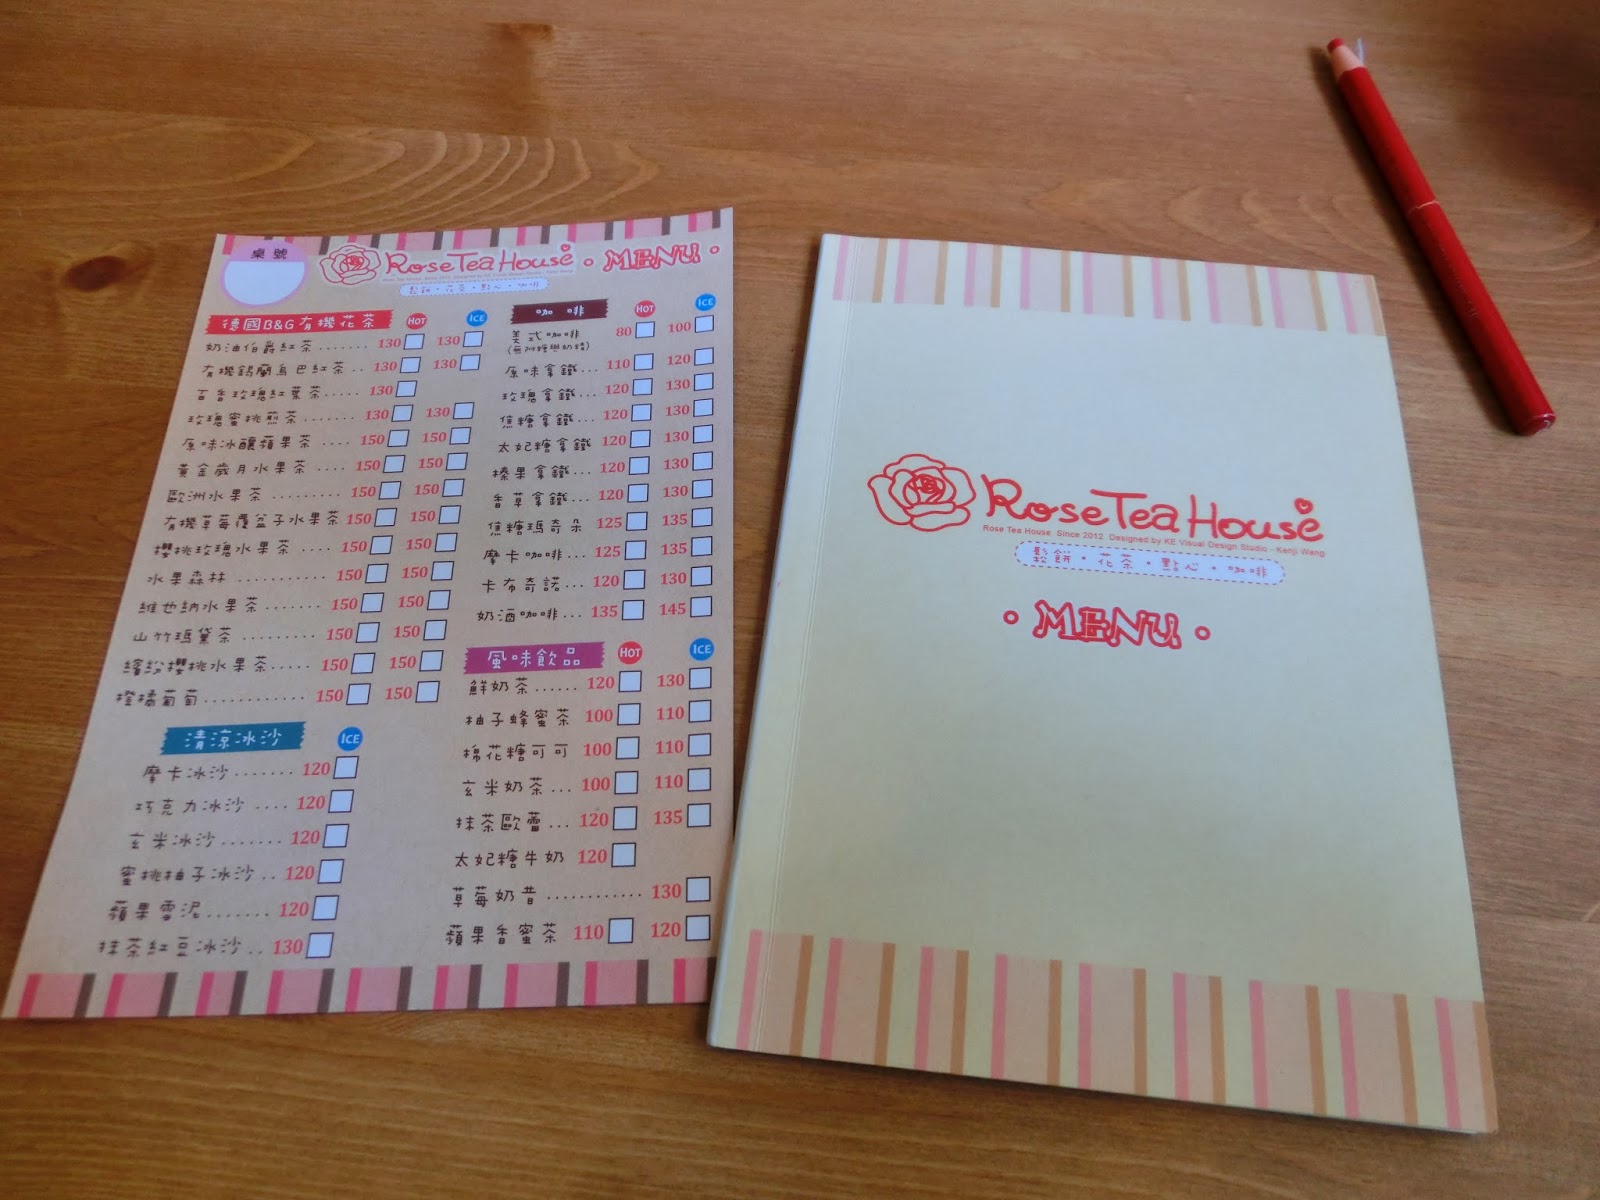 桌號
Rose Tea House • MENU •
Rose Tea House Since 2012 Designed by KE Visual Design Studio - Kenji Wang
鬆餅・花茶・點心・咖啡
德國B&G有機花茶 HOT ICE
奶油伯爵紅茶....... 130 130
有機錫蘭烏巴紅茶.. 130 130
百香玫瑰紅葉茶..... 130
玫瑰蜜桃煎茶....... 130 130
原味冰釀蘋果茶.... 150 150
黃金歲月水果茶.... 150 150
歐洲水果茶......... 150 150
有機草莓覆盆子水果茶 150 150
櫻桃玫瑰水果茶.... 150 150
水果森林........... 150 150
維也納水果茶....... 150 150
山竹瑪黛茶......... 150 150
繽紛櫻桃水果茶..... 150 150
橙橘葡萄........... 150 150
清涼冰沙 ICE
摩卡冰沙....... 120
巧克力冰沙.... 120
玄米冰沙....... 120
蜜桃柚子冰沙.. 120
蘋果雪泥....... 120
抹茶紅豆冰沙.. 130
咖啡 HOT ICE
美式咖啡 80 100
(無附糖與奶精)
原味拿鐵... 110 120
玫瑰拿鐵... 120 130
焦糖拿鐵... 120 130
太妃糖拿鐵 120 130
榛果拿鐵... 120 130
香草拿鐵... 120 130
焦糖瑪奇朵 125 135
摩卡咖啡... 125 135
卡布奇諾... 120 130
奶酒咖啡... 135 145
風味飲品 HOT ICE
鮮奶茶...... 120 130
柚子蜂蜜茶 100 110
棉花糖可可 100 110
玄米奶茶... 100 110
抹茶歐蕾... 120 135
太妃糖牛奶 120
草莓奶昔............ 130
蘋果香蜜茶 110 120
Rose Tea House
Rose Tea House Since 2012 Designed by KE Visual Design Studio - Kenji Wang
鬆餅・花茶・點心・咖啡
• MENU •